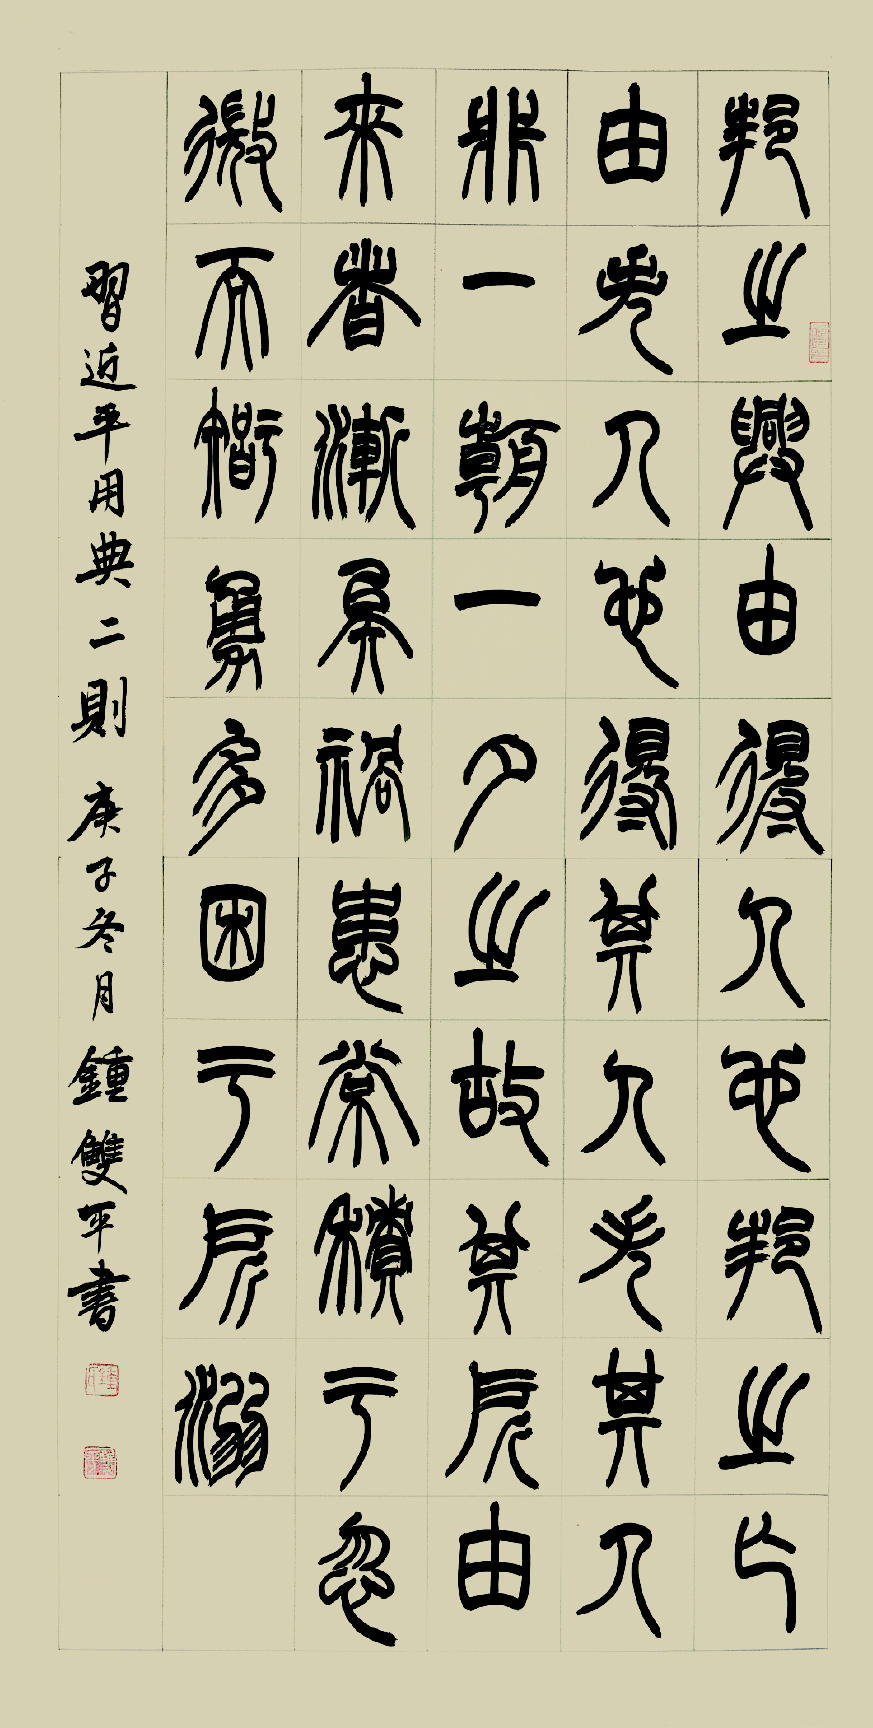 邦之興由得人也邦之亡
由失人也得其人失其人
非一朝一夕之故其所由
來者漸矣禍患常積于忽
微而智勇多困于所溺
習近平用典二則 庚子冬月 鍾雙平書